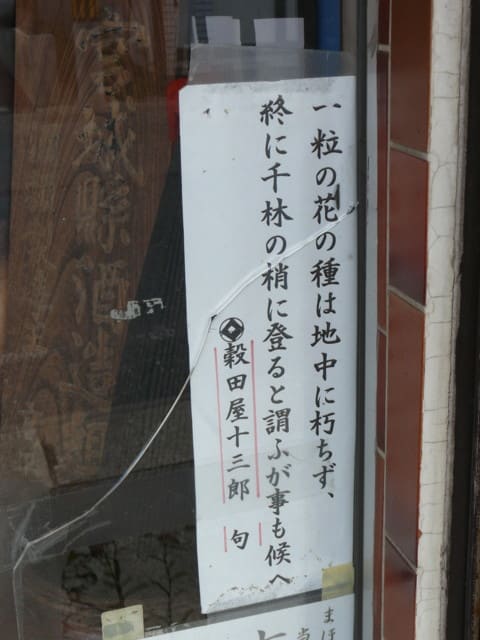 一粒の花の種は地中に朽ちず、
終に千林の梢に登ると謂ふが事も候へ
穀田屋十三郎 句
宮城縣酒造
まほ